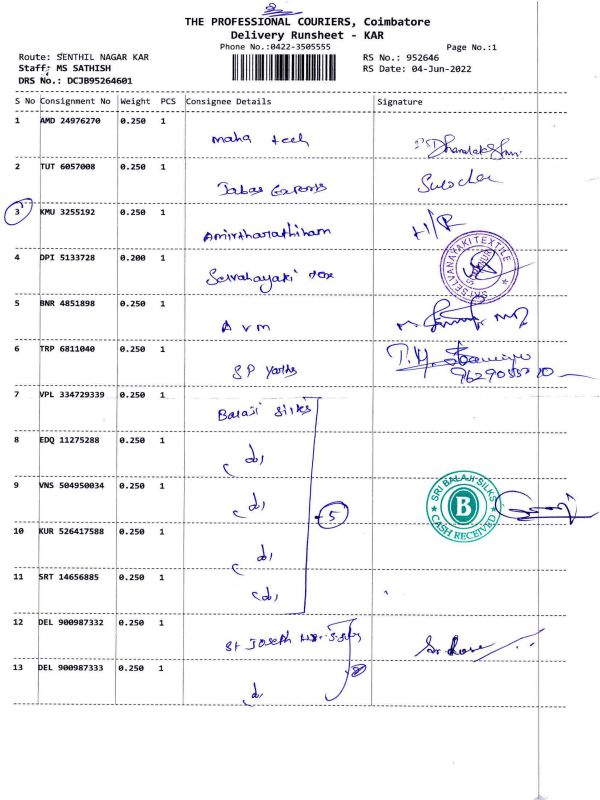 THE PROFESSIONAL COURIERS, Coimbatore
Delivery Runsheet - KAR
Phone No.:0422-3505555 Page No.:1
Route: SENTHIL NAGAR KAR RS No.: 952646
Staff: MS SATHISH RS Date: 04-Jun-2022
DRS No.: DCJB95264601
S No Consignment No Weight PCS Consignee Details Signature
1 AMD 24976270 0.250 1
maha tech
2 TUT 6057008 0.250 1
Exports
3 KMU 3255192 0.250 1
Amirtharathinam H/R
4 DPI 5133728 0.200 1
SRI SELVANAYAKI TEXTILE
5 BNR 4851898 0.250 1
A v m
6 TRP 6811040 0.250 1
S P
7 VPL 334729339 0.250 1
Balaji Silks
8 EDQ 11275288 0.250 1
(do)
9 VNS 504950034 0.250 1
(do) 5
SRI BALAJI SILKS
B
CASH RECEIVED
10 KUR 526417588 0.250 1
(do)
11 SRT 14656885 0.250 1
(do)
12 DEL 900987332 0.250 1
St Joseph
13 DEL 900987333 0.250 1
(do)